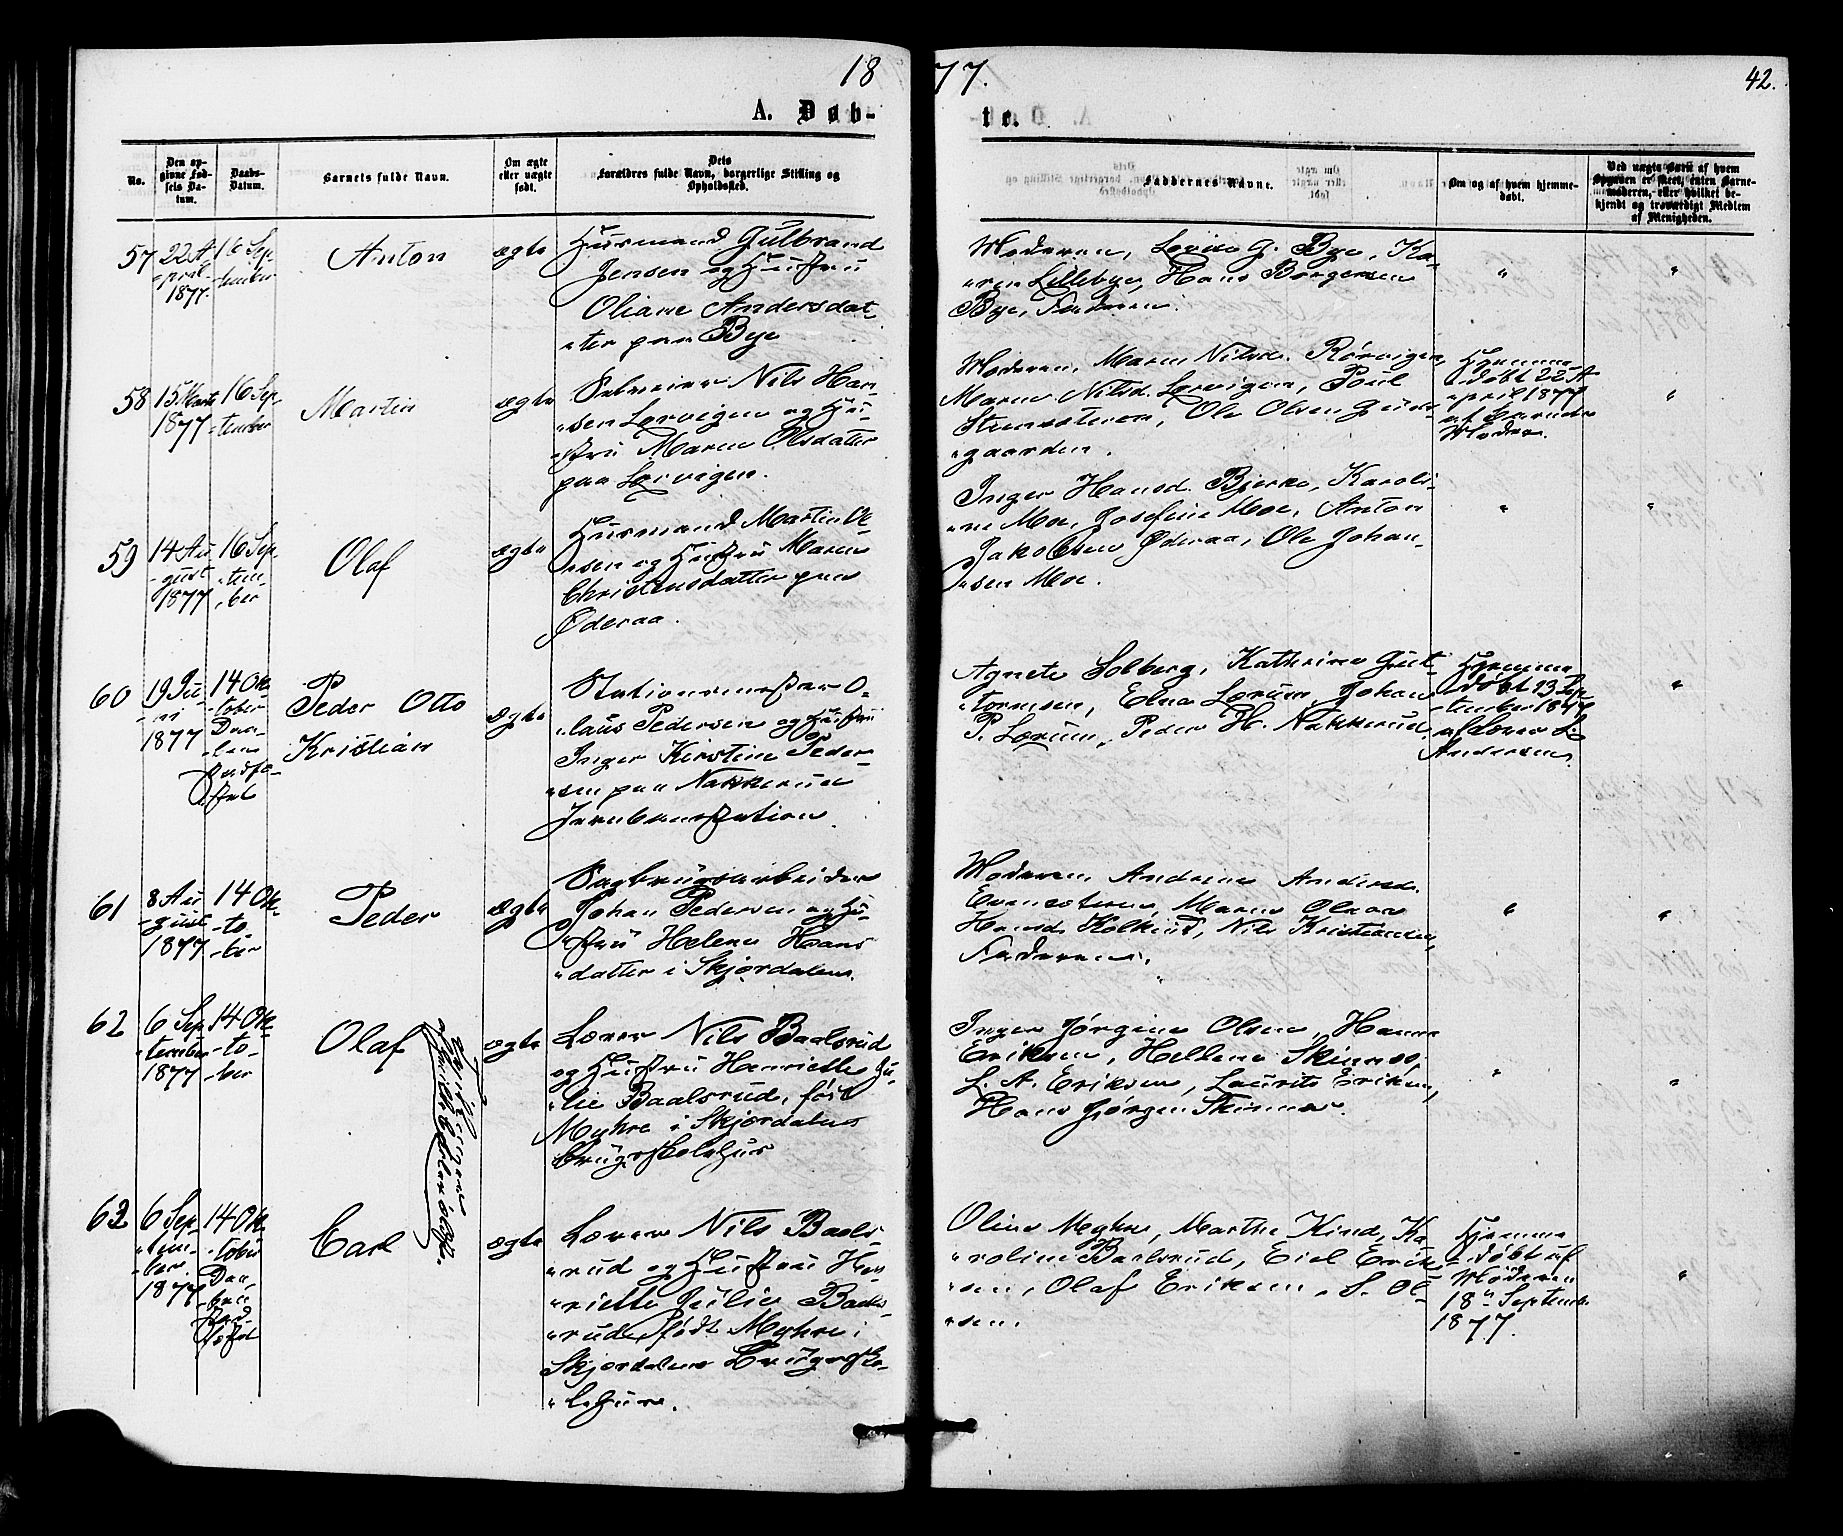 18
77.
42.
A. Døb-
te.
No.
Den op-
givne Fød-
sels Da-
tum.
Daabs-
Datum.
Barnets fulde Navn.
Om ægte
eller uægte
født.
Dets
Forældres fulde Navn, borgerlige Stilling og
Opholdssted.
Faddernes Navne.
Om og af hvem hjemme-
døbt.
Ved uægte Barn af hvem
Opgaven er skeet, enten Barne-
moderen, eller hvilket be-
kjendt og troværdigt Medlem
af Menigheden.
57
22 A
pril
1877.
16 Sep
tember
Anton
ægte
Husmand Gulbrand
Jensen og Hustru
Oliane Andersdat
ter paa Bye
Moderen, Lovise G. Bye, Ka-
ren Lillebye, Hans Borgersen
Bye, Faderen.
58
15 Marts
1877
16 Sep
tember
Martin
ægte
Selveier Nils Han
sen Lervigen og Hu
stru Maren Olsdatter
paa Lervigen.
Moderen, Maren Nilsd. Rørvigen,
Maren Nilsd. Lervigen, Poul
Steensteren, Ole Olsen
gaarden.
Hjemme
døbt 22 A
pril 1877
af Barnets
Moder.
59
14 Au
gust
1877
16 Sep
tem-
ber
Olaf
ægte
Husmand Martin Ol
sen og Hustru Maren
Christensdatter paa
Øderaa.
Inger Hansd. Bjerke, Karoli-
ne Moe, Josefine Moe, Anton
Jakobsen Øderaa, Ole Johan-
sen Moe.
60
19 Ju
ni
1877
14 Ok
tober
Daa-
ben
stadfæ-
stet
Peder Otto
Kristian
ægte
Stationsmester O-
laus Pedersen og Hustru
Inger Kirstine Peder
sen paa Nakkerud
Jernbanestation
Agnete Solberg, Kathrine Gut-
tormsen, Edna Lærum, Johan
P. Lærum, Peder H. Nakkerud
Hjemme
døbt 23 Sep
tember 1877
af Lærer L.
Andersen.
61
8 Au
gust
1877
14 Ok
to-
ber
Peder
ægte
Sagbrugsarbeider
Johan Pedersen og Hu-
stru Helene Hans
datter i Skjærdalen.
Moderen, Andrine Andersd.
Evensteren, Maren Olsen
Hansd. Kolkind, Nils Kristiansen,
Faderen.
62
6 Sep
tember
1877
14 Ok
to-
ber
Olaf
ægte
Lærer Nils Baalsrud
og Hustru Henriette Ju-
lie Baalsrud, født
Myhre i Skjærdalens
brugsskolehus
Inger Jørgine Olsen, Hanna
Eriksen, Hellene Skinnes,
L. A. Eriksen, Laurits Eriksen,
Hans Jørgen Skinnes.
63
6 Sep
tem-
ber
1877
14 Ok
tober
Daa-
ben
stad-
fæstet
Carl
ægte
Lærer Nils Baals-
rud og Hustru Hen-
riette Julie Baals-
rud, født Myhre i
Skjærdalens Brugssko-
lehus.
Oline Myhre, Marthe Kind, Ka
roline Baalsrud, Eiel Erik-
sen, Olaf Eriksen, S. Ol-
sen.
Hjemme
døbt af
Moderen
18 September
1877.